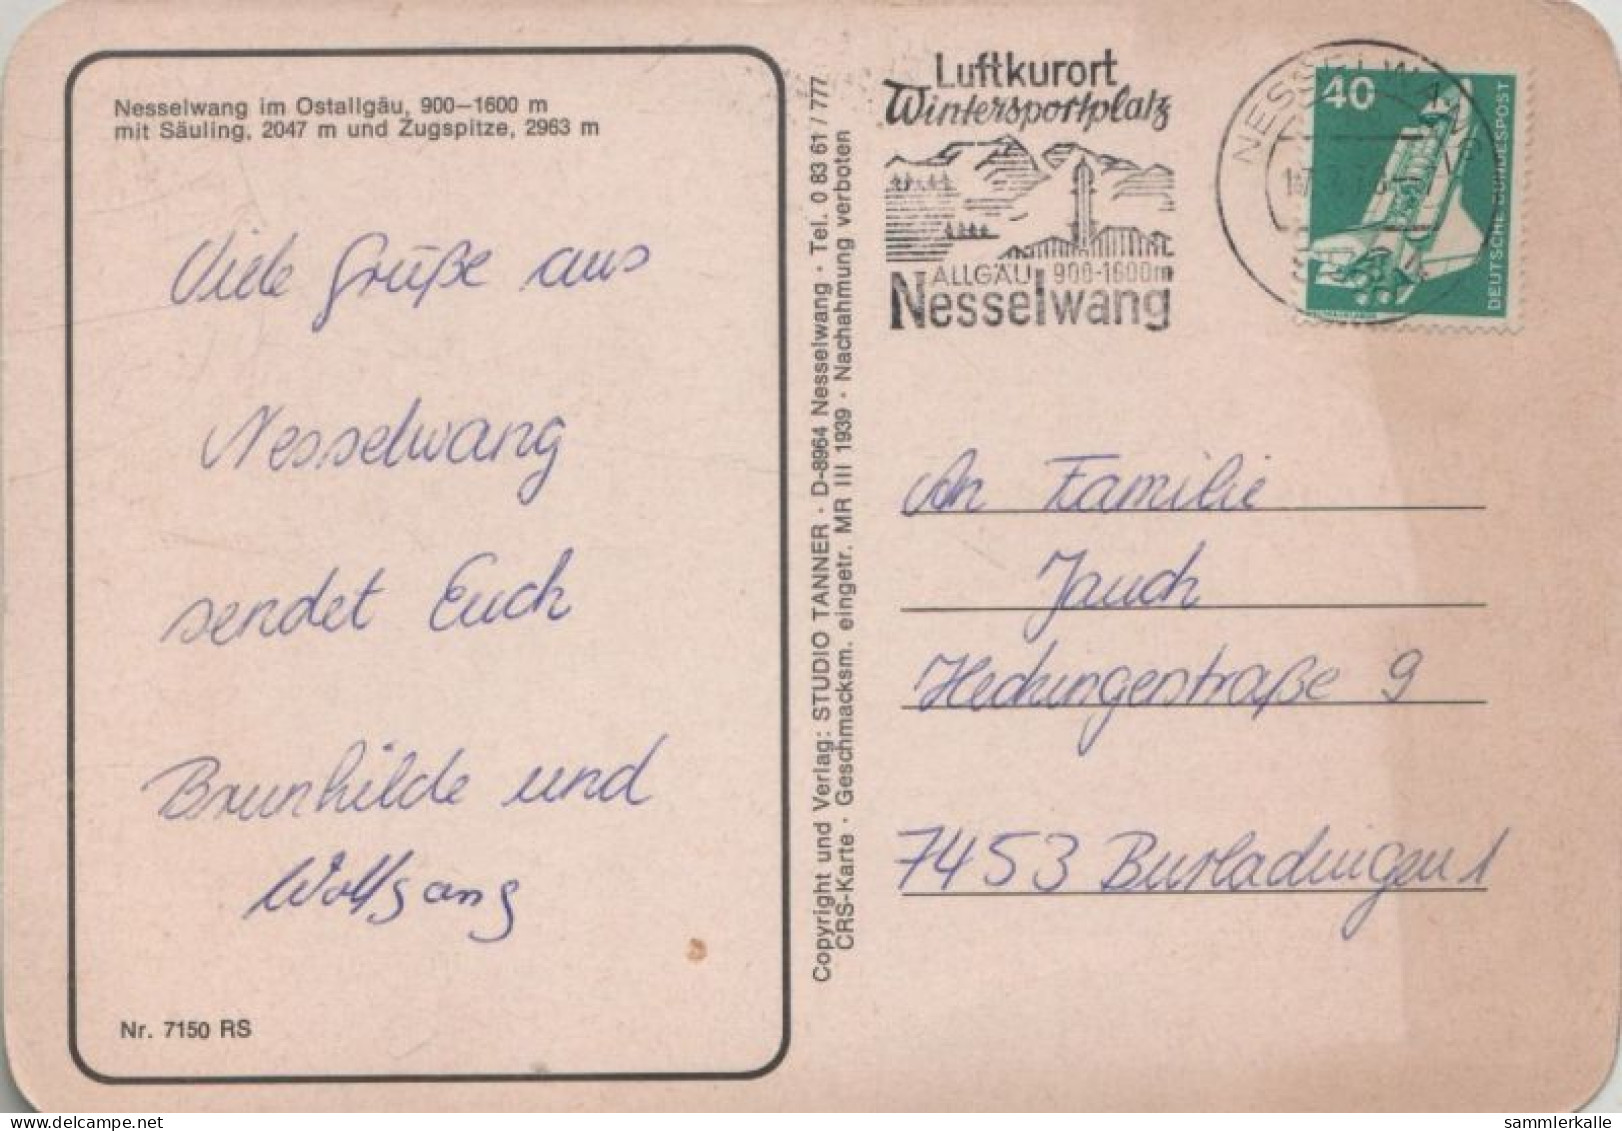 Nesselwang im Ostallgäu, 900–1600 m
mit Säuling, 2047 m und Zugspitze, 2963 m
Viele Grüße aus
Nesselwang
sendet Euch
Brunhilde und
Wolfgang
Nr. 7150 RS
Copyright und Verlag: STUDIO TANNER · D-8964 Nesselwang · Tel. 0 83 61 / 777
CRS-Karte · Geschmacksm. eingetr. MR III 1939 · Nachahmung verboten
Luftkurort
Wintersportplatz
ALLGÄU 900-1600m
Nesselwang
NESSELWANG
40
DEUTSCHE BUNDESPOST
An Familie
Jauch
Hechingerstraße 9
7453 Burladingen 1
sammlerkalle